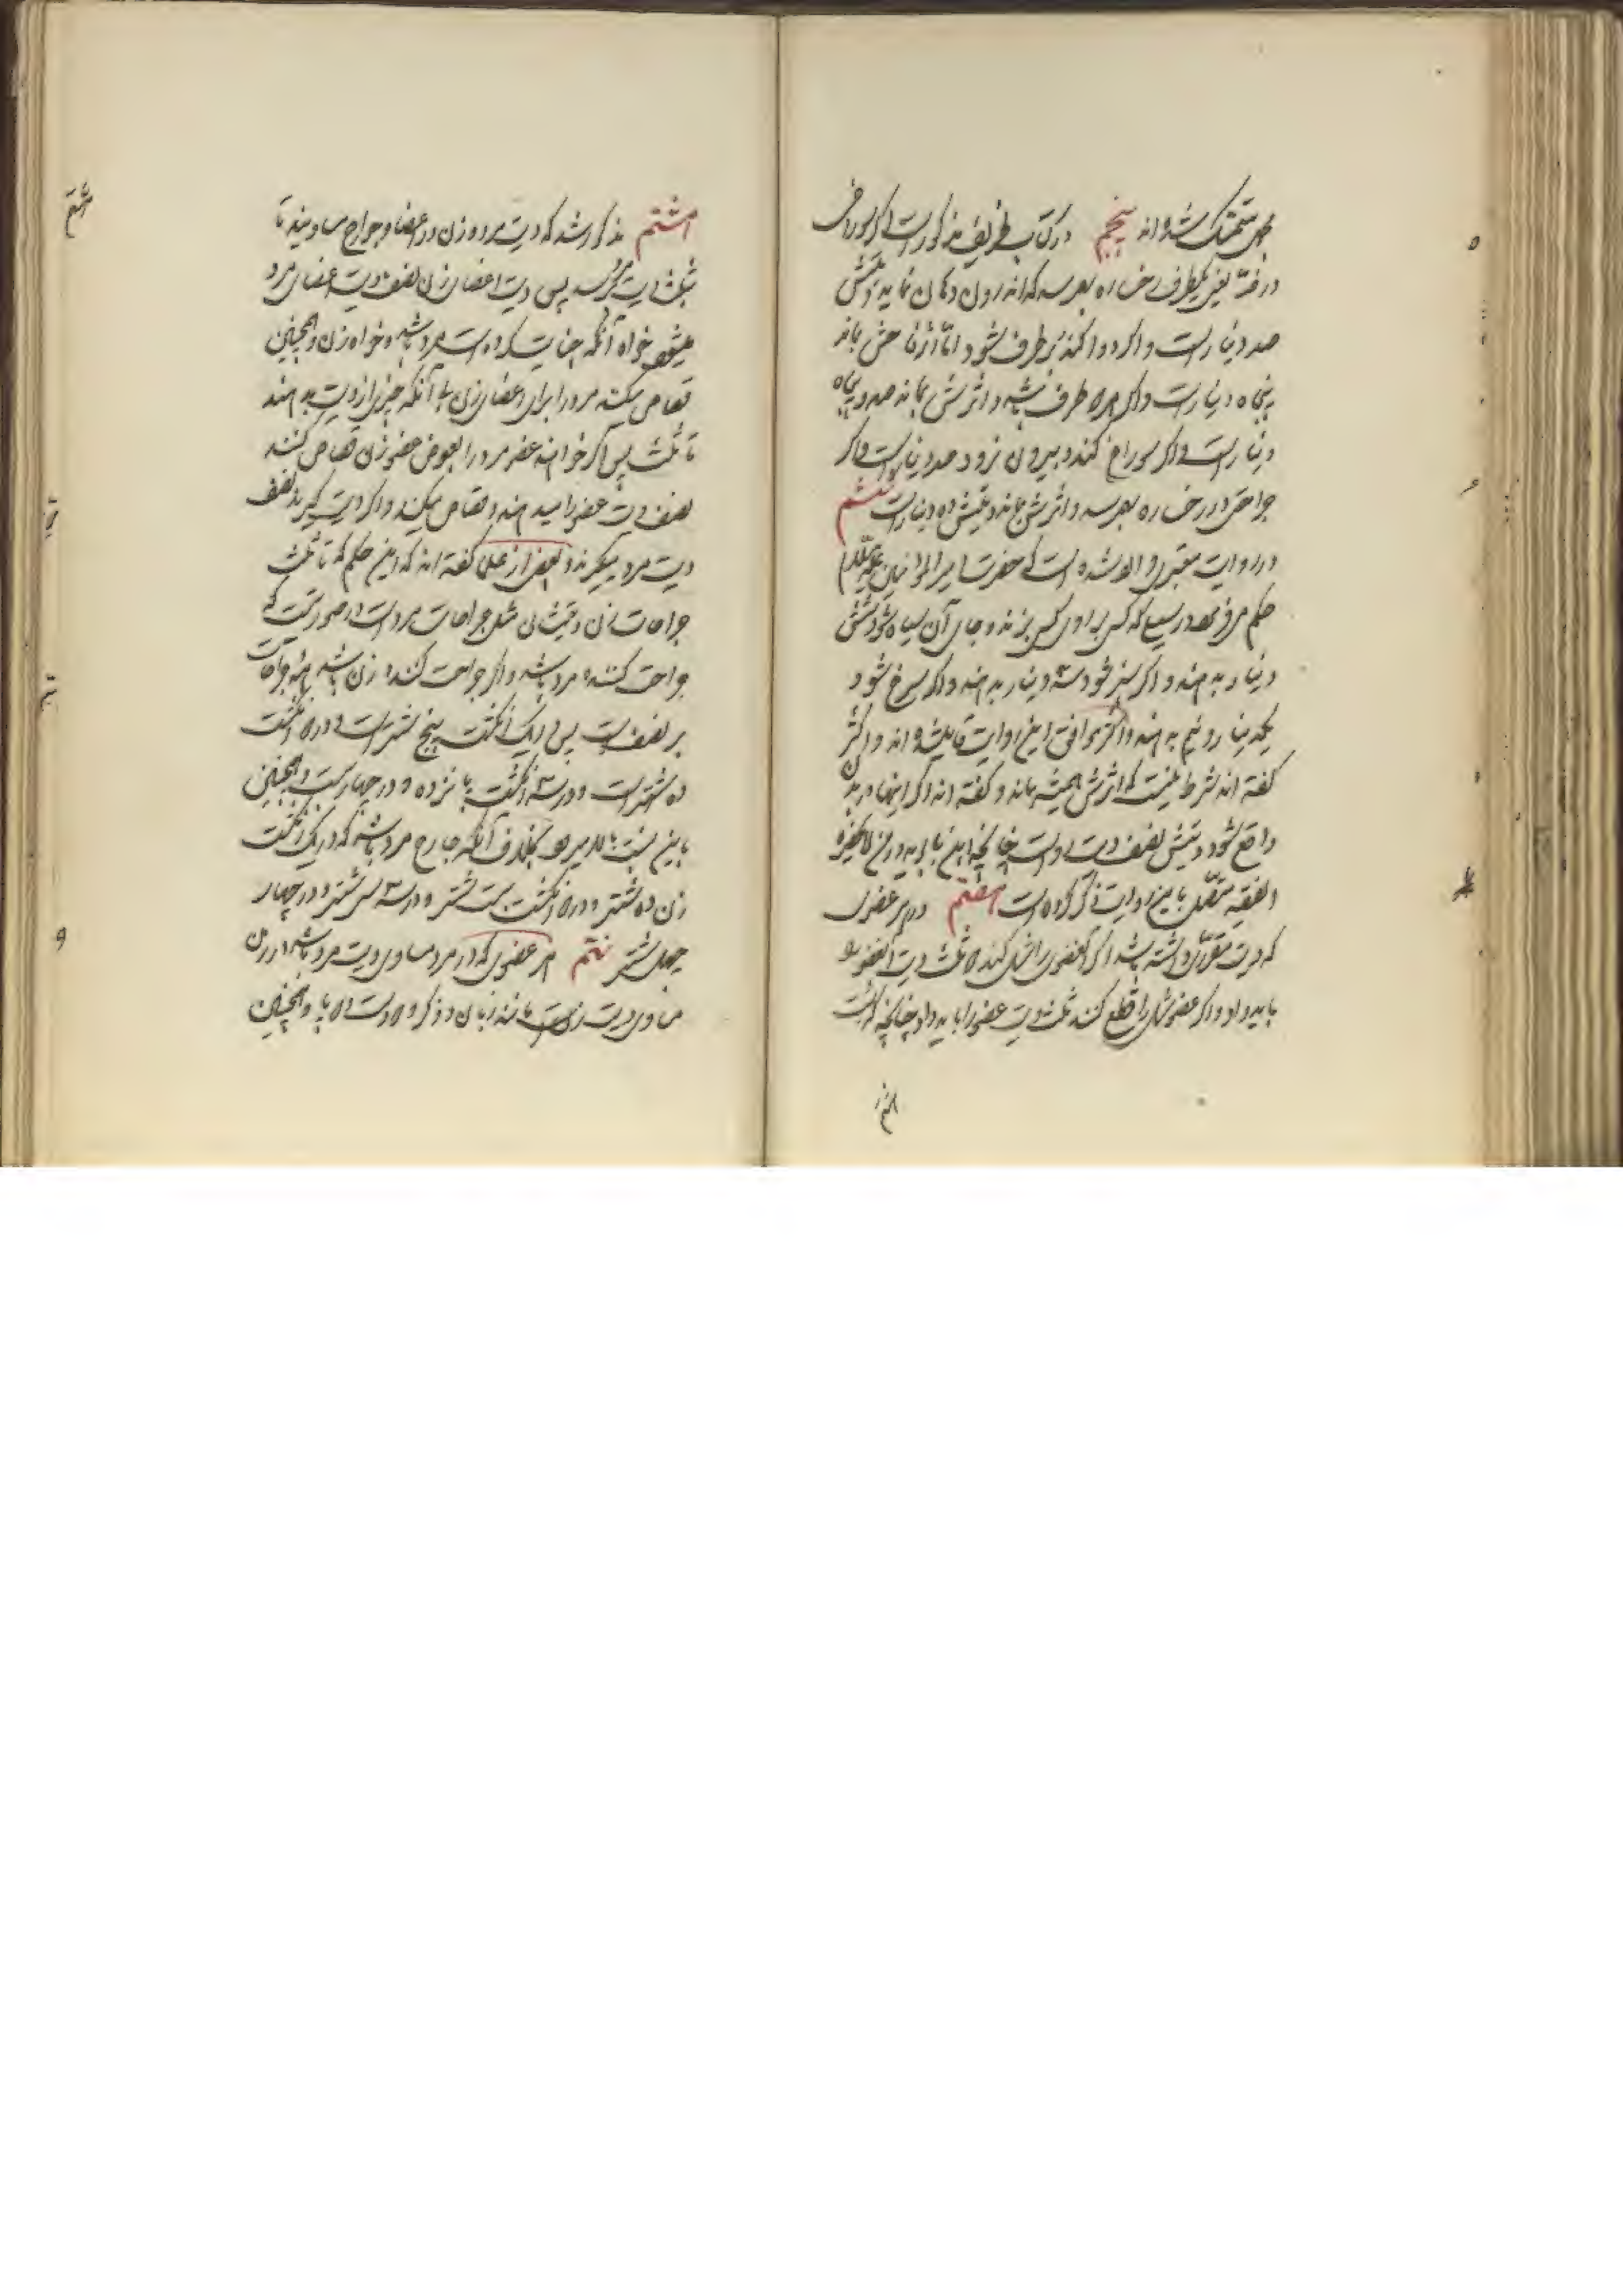 بهمین متمسک شده‌اند پنجم در کتاب ظریف مذکور است که اگر سوراخی
در خدّ یعنی یکطرف رخساره بهم رسد که اندرون دهان نماید دیتش
صد دینار است و اگر دوا کنند برطرف شود امّا اثر فاحش باقی
پنجاه دینار است و اگر هر دو طرف باشد و اثرش بماند صد و پنجاه
دینار است و اگر سوراخ کند و بیرون نرود صد دینار است و اگر
جراحتی در رخساره بهم رسد و اثرش بماند دیتش ده دینار است ششم
در روایت معتبر وارد شده است که حضرت امیرالمؤمنین علیه السلام
حکم فرمود در سیلی که کسی بر روی کسی بزند و جای آن سیاه شود شش
دینار بدهند و اگر سبز شود سه دینار بدهند و اگر سرخ شود
یکدینار و نیم بدهند و اکثر موافق این روایت قایل شده‌اند و اکثر
گفته‌اند شرط نیست که اثرش همیشه بماند و گفته‌اند اگر اینها در بدن
واقع شود دیتش نصف دیت رو است چنانچه ابن بابویه در من لا یحضره
الفقیه متصل باین روایت ذکر کرده است هفتم در هر عضوی
که دیت مقرّری داشته باشد اگر آن عضو را شل کند دو ثلث دیت آن عضو را
باید داد و اگر عضو شل را قطع کنند ثلث دیت عضو را باید داد چنانچه گذشت
هشتم
هشتم مذکور شد که دیت مرد و زن در اعضا و جوارح مساویند تا
بثلث دیت مرد برسد پس دیت اعضای زن نصف دیت اعضای مرد
میشود خواه آنکه جنایت کرده است مرد باشد و خواه زن و همچنین
قصاص میکنند مرد را برای اعضای زن بی آنکه چیزی از دیت بدهند
تا ثلث پس اگر خواهند عضو مرد را بعوض عضو زن قصاص کنند
نصف دیت عضو را میدهند و قصاص میکنند و اگر دیت گیرند نصف
دیت مرد میگیرند و بعضی از علما گفته‌اند که این حکم که تا ثلث
جراحات زن دیتشان مثل جراحات مرد است در صورتیست که
جراحت کننده مرد باشد و اگر جراحت کننده زن باشد همه جراحات
بر نصف است پس در یک انگشت پنج شتر است و در دو انگشت
ده شتر است و در سه انگشت پانزده و در چهار بیست و همچنین
باین نسبت بالا میرود بخلاف آنکه جارح مرد باشد که در یک انگشت
زن ده شتر و در دو انگشت بیست شتر و در سه سی شتر و در چهار
چهل شتر نهم هر عضوی که در مرد مساوی دیت مرد باشد در زن
مساوی دیت زن است مانند زبان و ذکر و دو دست و دو پا و همچنین